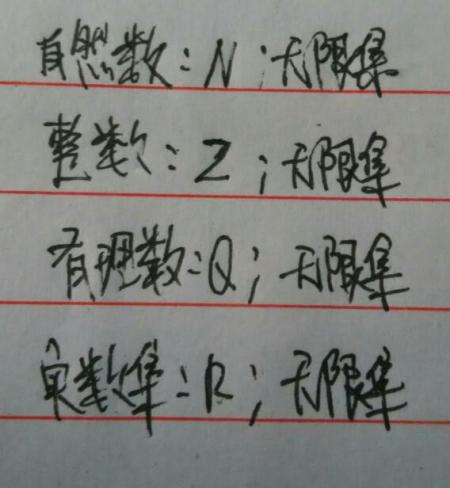 自然数:N;无限集
整数:Z;无限集
有理数:Q;无限集
实数集:R;无限集